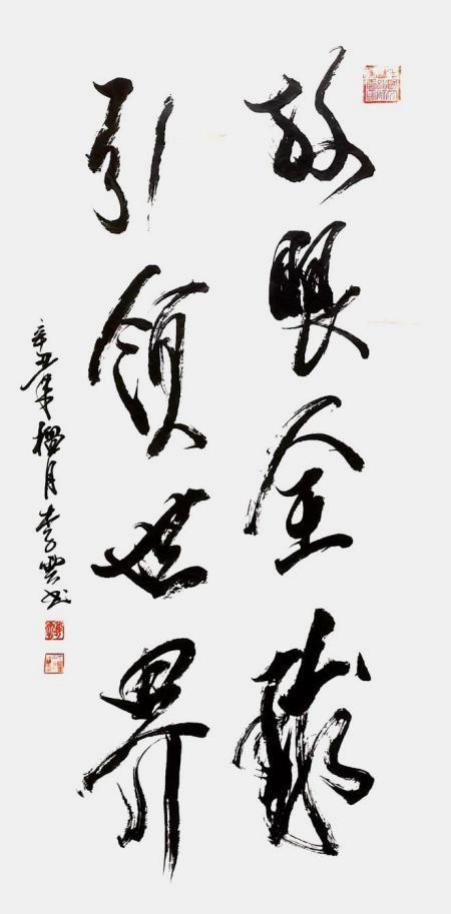 放眼全球
引领世界
辛丑年榴月李雲书